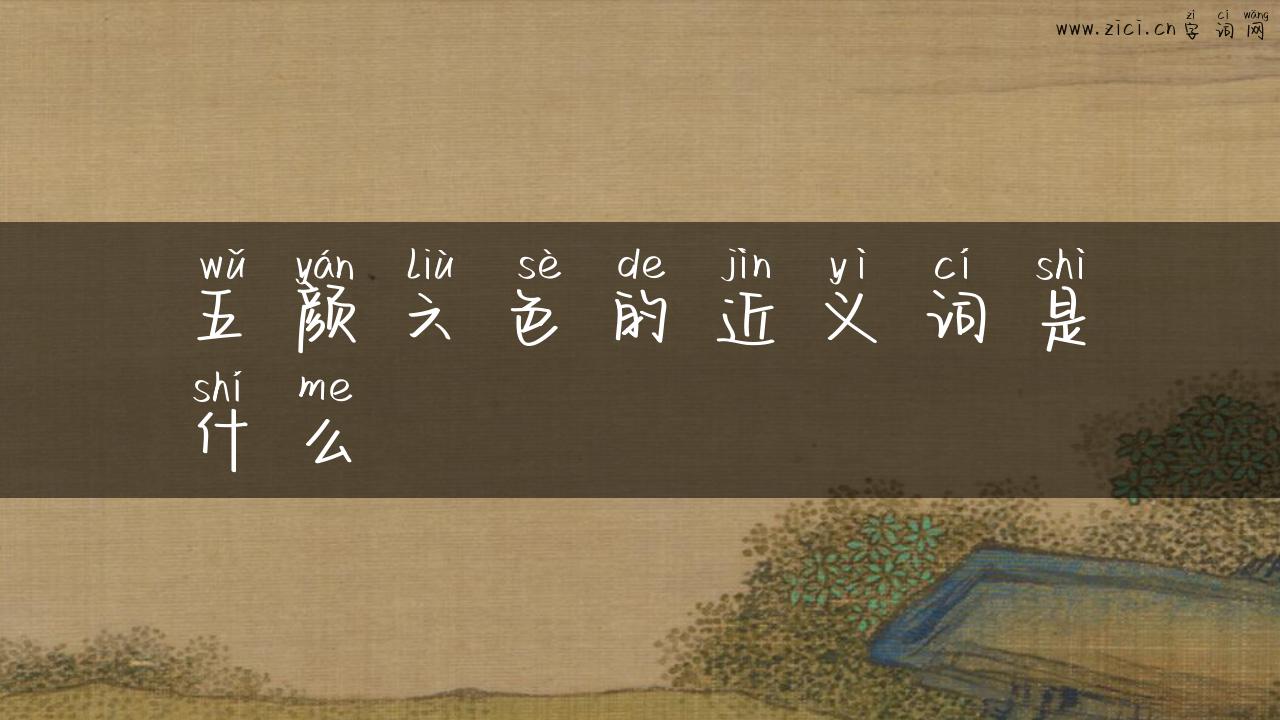 zì cí wǎng
www.zici.cn 字词网
wǔ yán liù sè de jìn yì cí shì
五颜六色的近义词是
shí me
什么